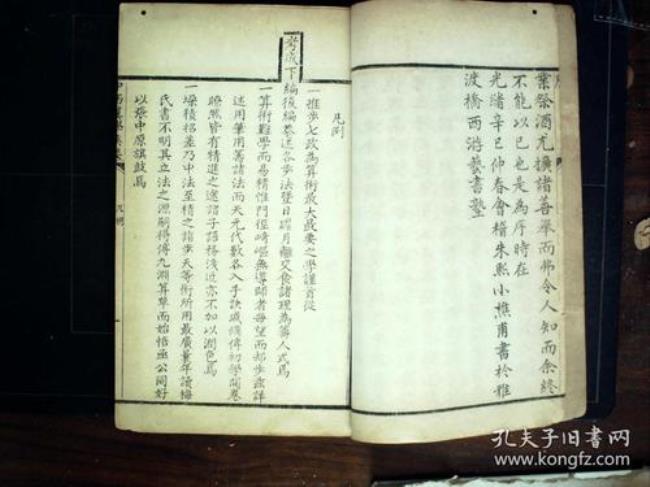 業祭酒尤擴諸善舉而弗令人知而余終
不能以已也是為序時在
光緒辛巳仲春會稽朱 小樵甫書於雅
渡橋西游藝書塾
凡例
一推步七政為算術最大最要之學謹首從
考成下編後編恭述各步法暨日躔月離交食諸理為籌人式焉
一算術難學而易精惟門徑崎嶇無導歸者每望而却步茲詳
述用筆用籌諸法而天元代數各入手訣 俾初學開卷
瞭然皆有精進之途諸子語格淺近亦不加以潤色焉
一垛積招差乃中法至精之詣步天等術所用最廣曩年讀梅
氏書不明其立法之源嗣得傅九淵算草而始悟亟公同好
以張中原旗鼓焉
凡例
孔夫子旧书网
www.kongfz.com